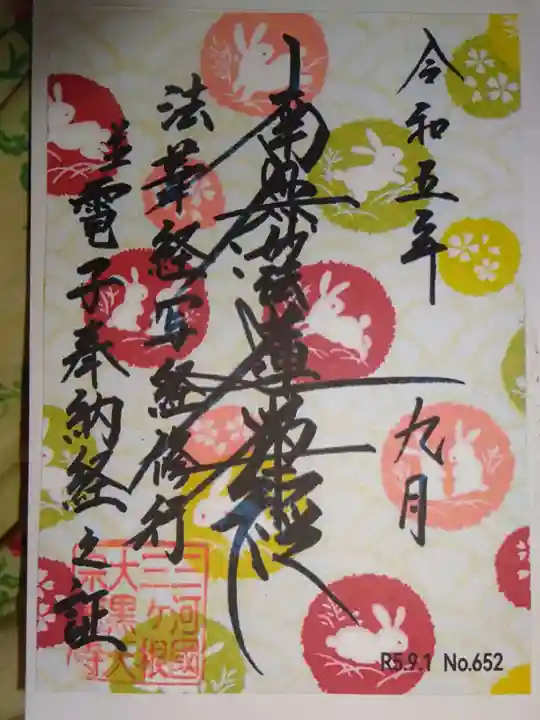 令和五年 九月
南無妙法蓮華経
法華経写経修行
並電子奉納経之証
三河國
三ヶ根
大黒天
宗徧寺
R5.9.1 No.652